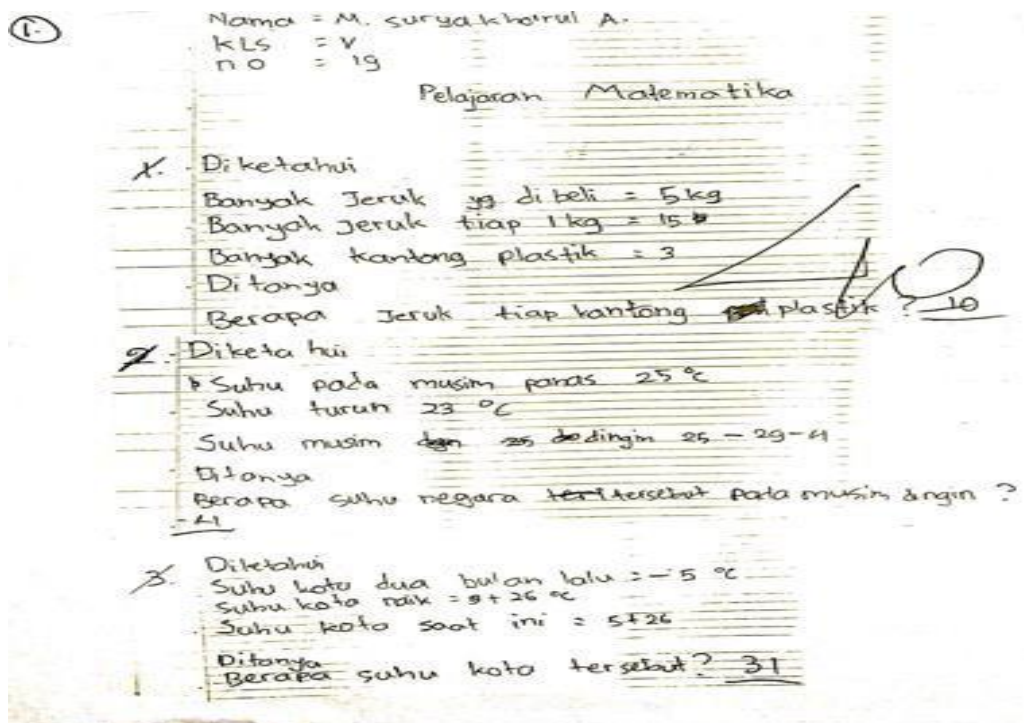 1.
Nama = M. suryakhoirul A.
KLS = V
no = 19
Pelajaran Matematika
1. Diketahui
Banyak Jeruk yg di beli = 5kg
Banyak Jeruk tiap 1 kg = 15
Banyak kantong plastik = 3
Ditanya
Berapa Jeruk tiap kantong plastik ? 10
40
2. Diketa hui
Suhu pada musim panas 25 °C
Suhu turun 23 °C
Suhu musim dingin 25 - 29 - 4
Ditanya
Berapa suhu negara tersebut pada musim dingin ?
- 4
3. Diketahui
Suhu kota dua bulan lalu = - 5 °C
Suhu kota naik = + 26 °C
Suhu kota saat ini = 5+26
Ditanya
Berapa suhu kota tersebut? 31